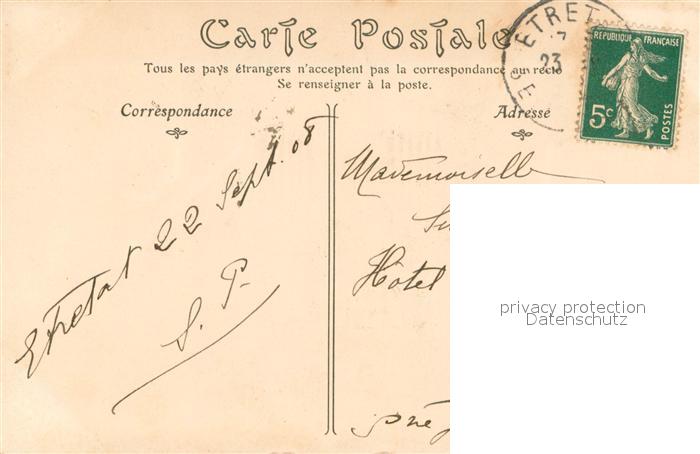 Carte Postale
Tous les pays étrangers n'acceptent pas la correspondance au recto
Se renseigner à la poste.
Correspondance
Adresse
ETRETAT
23
REPUBLIQUE FRANÇAISE
5c
POSTES
Etretat 22 Sept. 08
S. P.
Mademoiselle
Hôtel
près
privacy protection
Datenschutz